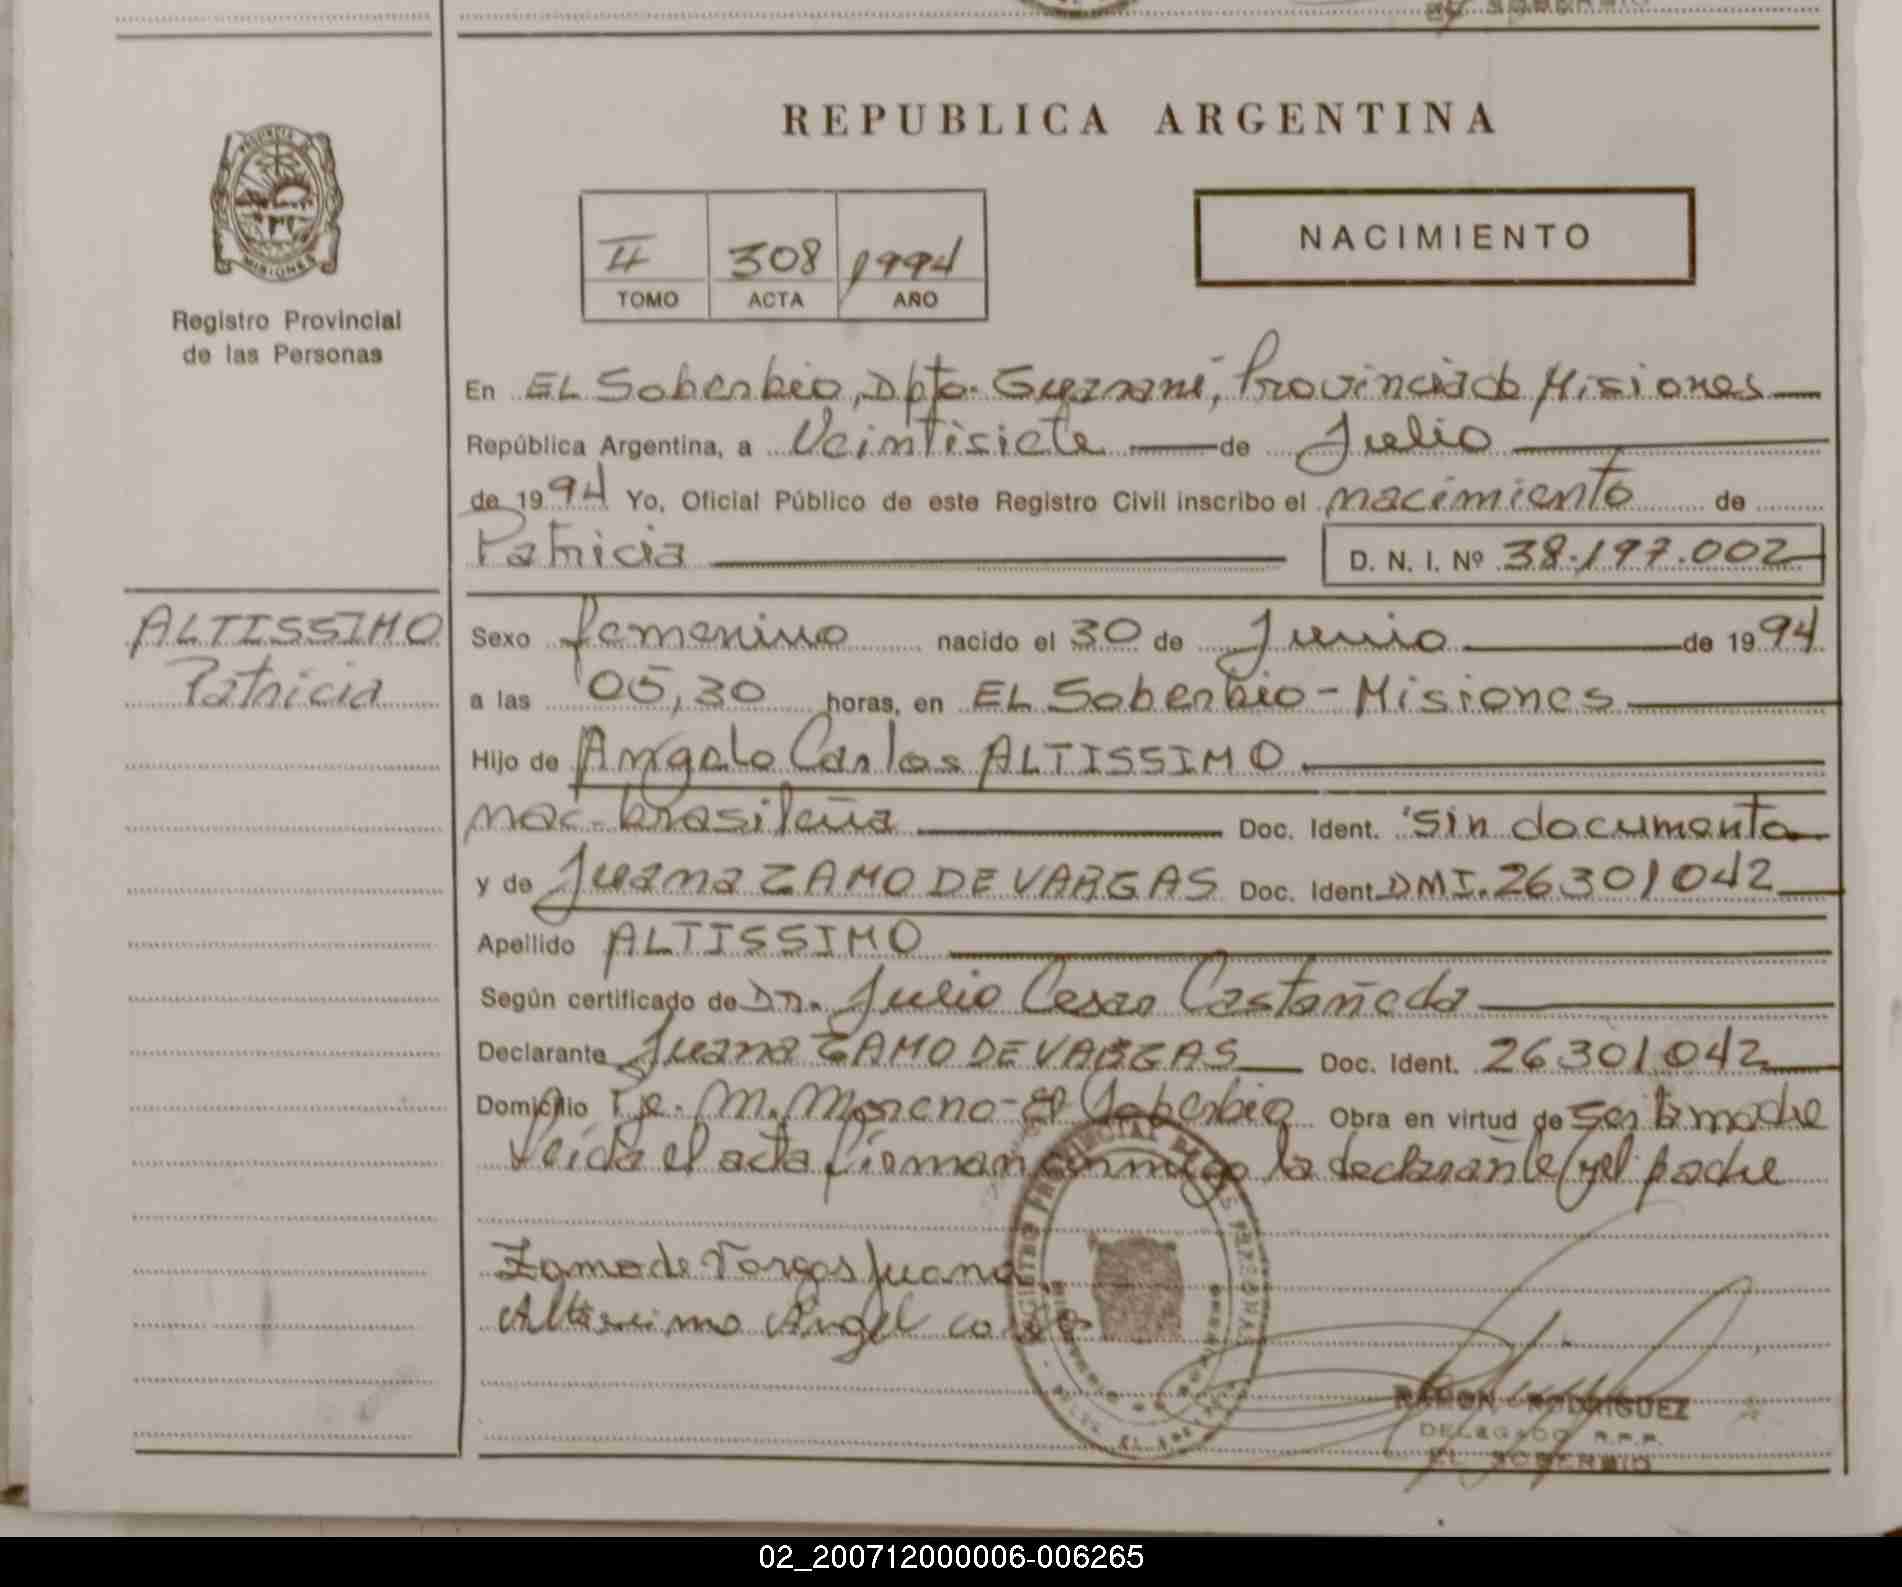 REPUBLICA ARGENTINA
PROVINCIA DE
MISIONES
Registro Provincial
de las Personas
II 308 1994
TOMO ACTA AÑO
NACIMIENTO
En EL Soberbio, Dpto. Guarani, Provincia de Misiones
República Argentina, a Veintisiete de Julio
de 1994 Yo, Oficial Público de este Registro Civil inscribo el nacimiento de
Patricia D. N. I. Nº 38.197.002
ALTISSIMO
Patricia
Sexo femenino nacido el 30 de Junio de 1994
a las 05,30 horas, en EL Soberbio - Misiones
Hijo de Angelo Carlos ALTISSIMO
nac. brasileña Doc. Ident. sin documento
y de Juana ZAMO DE VARGAS Doc. Ident. DNI. 26301042
Apellido ALTISSIMO
Según certificado de Dr. Julio Cesar Castañeda
Declarante Juana ZAMO DE VARGAS Doc. Ident. 26301042
Domicilio M. Moreno - El Soberbio Obra en virtud de ser la madre
Leida el acta firman conmigo la declarante y el padre
Zamo de Vargas Juana
Altissimo Angel
REGISTRO PROVINCIAL DE LAS PERSONAS
RAMON RODRIGUEZ
DELEGADO R.P.P.
EL SOBERBIO
02_200712000006-006265